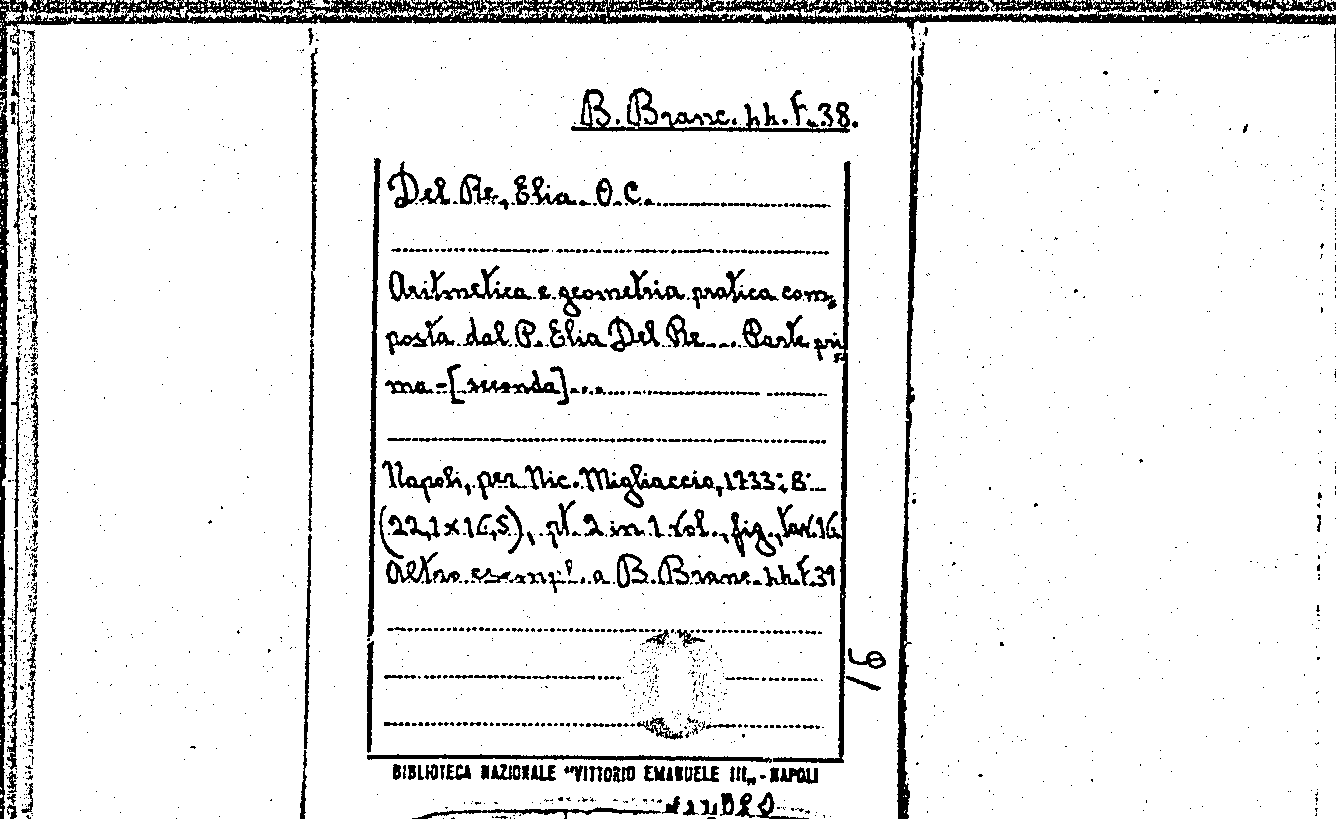 B. Branc. hh. F. 38.
Del Re, Elia. O. C.
Aritmetica e geometria pratica com-
posta dal P. Elia Del Re... Parte pri-
ma-[seconda]...
Napoli, per Nic. Migliaccio, 1733; 8°
(22,1x16,5), pt. 2 in 1 vol., fig., tav. 16
Altro esempl. a B. Branc. hh. F. 39
16
BIBLIOTECA NAZIONALE "VITTORIO EMANUELE III„ - NAPOLI